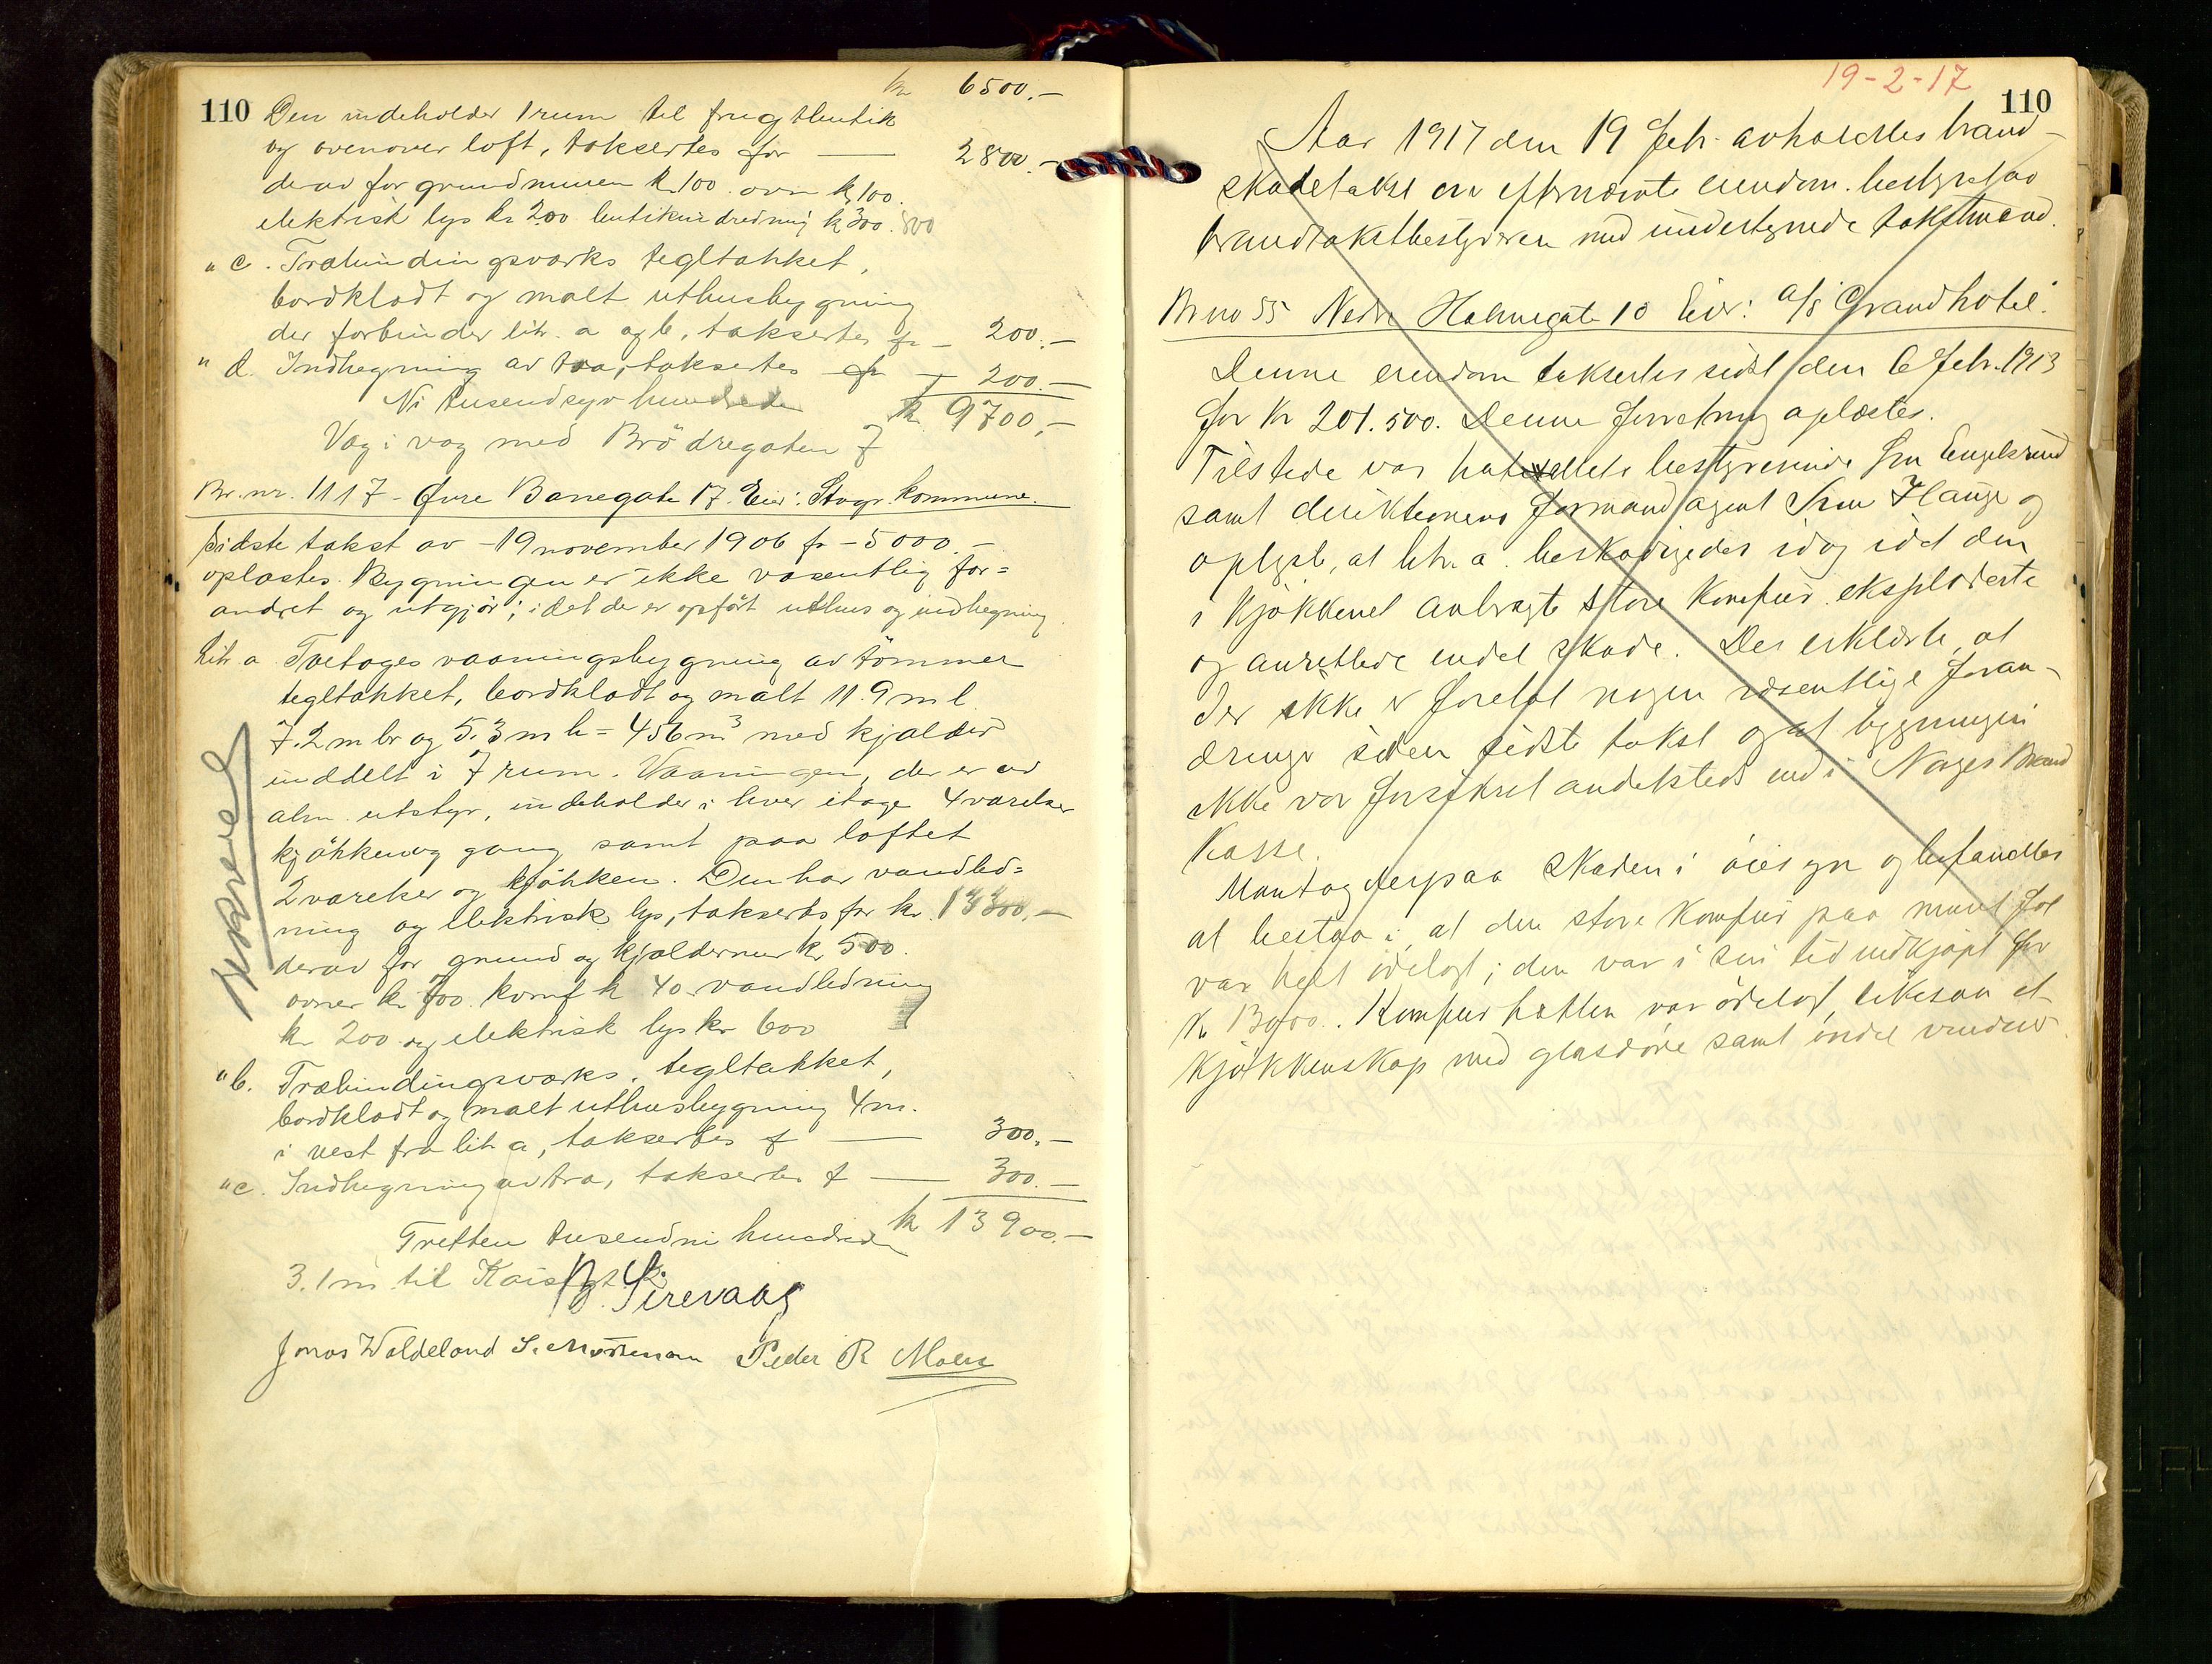 kr 6500.-
110 Den indeholder 1 rum til frugtbutik
og ovenover loft, taksertes for — 2800.-
derav for grundmuren kr 100. ovn kr 100.
elektrisk lys kr 200 butikindredning kr 300. 800
" c. Træbindingsverks tegltækket,
bordklædt og malt uthusbygning
der forbinder litr. a og b, taksertes fr — 200.-
" d. Indhegning av træ, taksertes fr — 200.-
Ni tusendsyvhundrede kr 9700,-
Væg i væg med Brödregaten 7
Br. nr. 1117 - Övre Banegate 17. Eier: Stvgr. kommune.
Sidste takst av - 19 november 1906 fr - 5000.-
oplæstes. Bygningen er ikke væsentlig for=
andret og utgjör; idet der er opfört uthus og indhegning
Litr a Toetages vaaningsbygning av tömmer
tegltækket, bordklædt og malt 11.9 m l.
7.2 m br og 5.3 m h = 456 m³ med kjælder
inddelt i 7 rum. Vaaningen, der er av
alm. utstyr, indeholder i hver etage 4 værelser
kjökken og gang samt paa loftet
2 værelser og kjökken. Den har vandled=
ning og elektrisk lys, taksertes for kr. 13300.-
derav for grund og kjældermur kr 500.
ovner kr 700. komf kr 40. vandledning
kr 200 og elektrisk lys kr 600
" b. Træbindingsværks, tegltækket,
bordklædt og malt uthusbygning 4 m.
i vest fra litr a, taksertes f — 300.-
" c. Indhegning av træ, taksertes f — 300.-
Tretten tusendni hundrede kr 13900.-
3.1 m til
B. Sirevaag
Jonas Waldeland S. Mortensen Peder R Moen
19-2-17
110
Aar 1917 den 19 Febr. avholdtes brand-
skadetakst over efternævnte eiendom. bestyret av
brandtakstbestyreren med undertegnede takstmænd.
Br no 55 Nedre Holmegate 10 Eier: A/S "Grand hotel".
Denne eiendom taksertes sidst den 6 Febr. 1913
for kr 201.500. Denne forretning oplæstes.
Tilstede var hotellets bestyrerinde fru Engelsund
samt direktionens formand agent Sven Hauge og
oplyste, at litr. a. beskadigedes idag idet den
i Kjökkenet anbragte store Komfur eksploderte
og anrettede endel skade. Der erklærte, at
der ikke er foretat nogen væsentlige foran-
dringer siden sidste takst og at bygningen
ikke var forsikret andetsteds end i Norges Brand
Kasse.
Mantog derpaa skaden i öiesyn og befandtes
at bestaa i, at den store Komfur paa muret fot
var helt ödelagt; den var i sin tid indkjöpt for
Kr 1300.00. Komfurhatten var ödelagt, likesaa et
Kjökkenskap med glasdöre samt endel vinduer